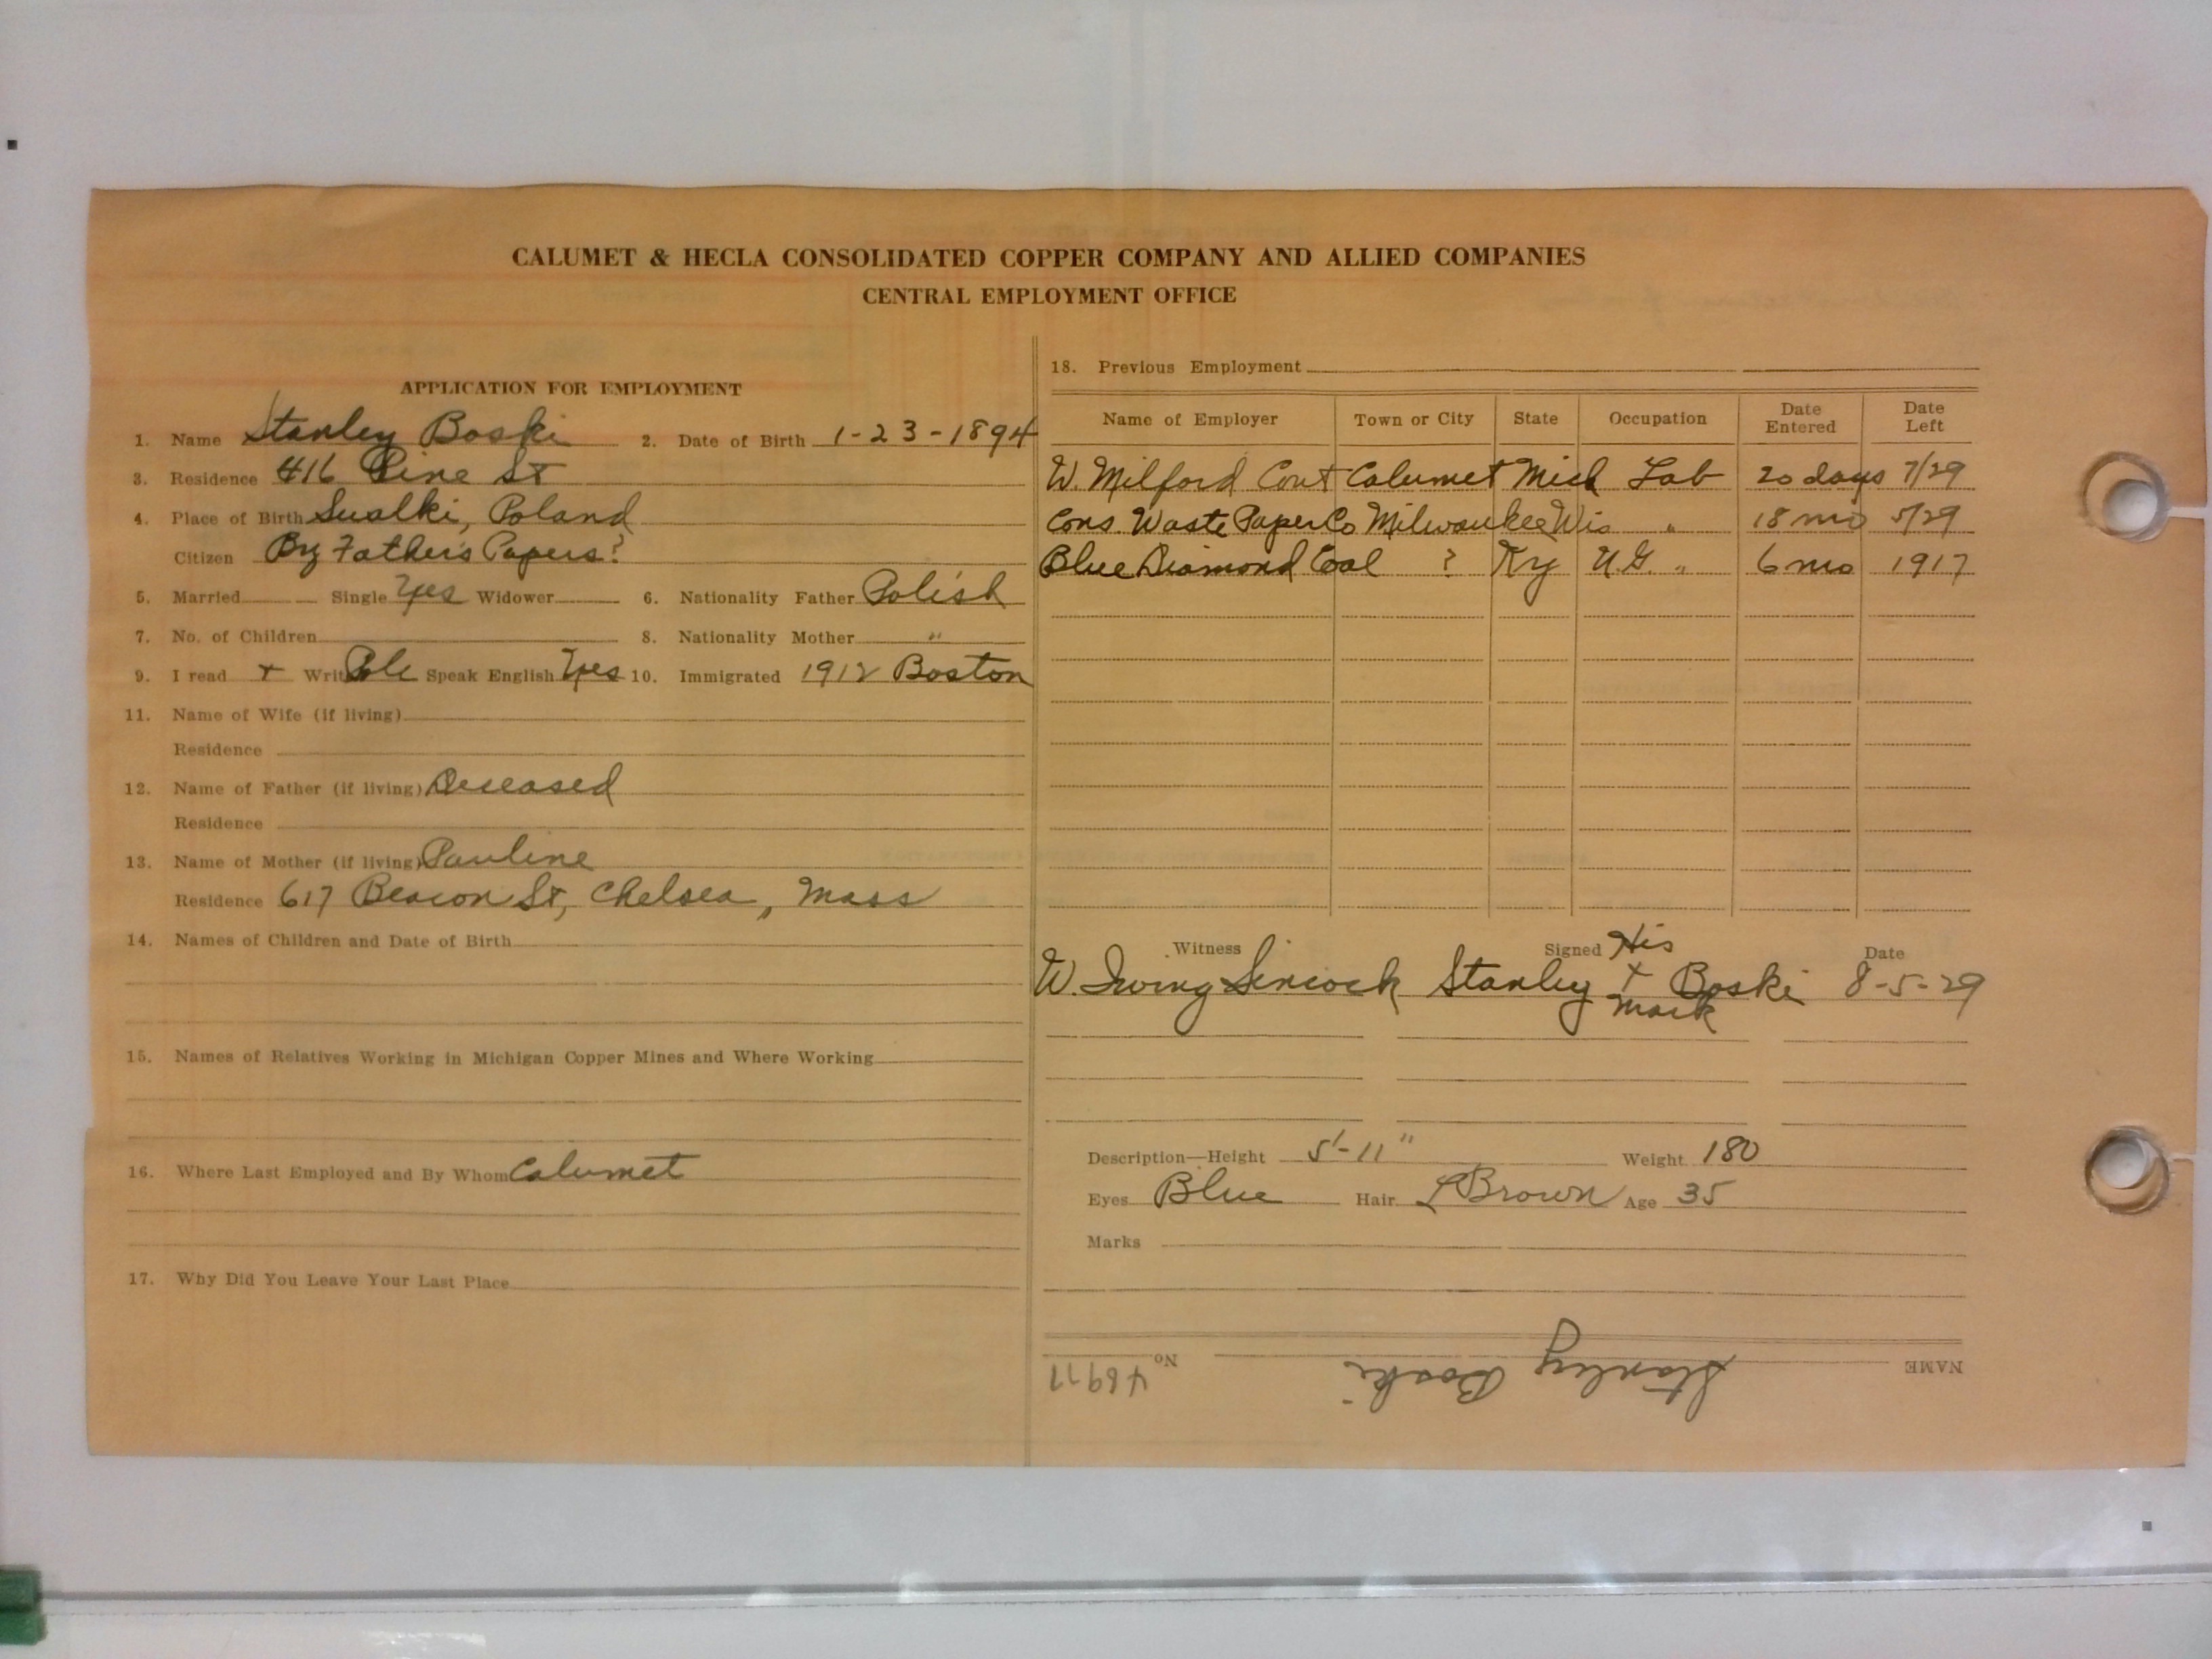 CALUMET & HECLA CONSOLIDATED COPPER COMPANY AND ALLIED COMPANIES
CENTRAL EMPLOYMENT OFFICE
APPLICATION FOR EMPLOYMENT
1. Name Stanley Boski 2. Date of Birth 1-23-1894
3. Residence 416 Pine St
4. Place of Birth Sualki, Poland
Citizen By Father's Papers?
5. Married Single Yes Widower 6. Nationality Father Polish
7. No. of Children 8. Nationality Mother "
9. I read + Write Pole Speak English Yes 10. Immigrated 1912 Boston
11. Name of Wife (if living)
Residence
12. Name of Father (if living) Deceased
Residence
13. Name of Mother (if living) Pauline
Residence 617 Beacon St, Chelsea, Mass
14. Names of Children and Date of Birth
15. Names of Relatives Working in Michigan Copper Mines and Where Working
16. Where Last Employed and By Whom Calumet
17. Why Did You Leave Your Last Place
18. Previous Employment
Name of Employer Town or City State Occupation Date Entered Date Left
W. Milford Cont Calumet Mich Lab 20 days 7/29
Cons. Waste Paper Co Milwaukee Wis " 18 mo 5/29
Blue Diamond Coal ? Ky U.G. " 6 mo 1917
Witness Signed His Date
W. Irving Sincock Stanley + Boski 8-5-29
Mark
Description—Height 5'-11" Weight 180
Eyes Blue Hair L Brown Age 35
Marks
NAME Stanley Boski No.